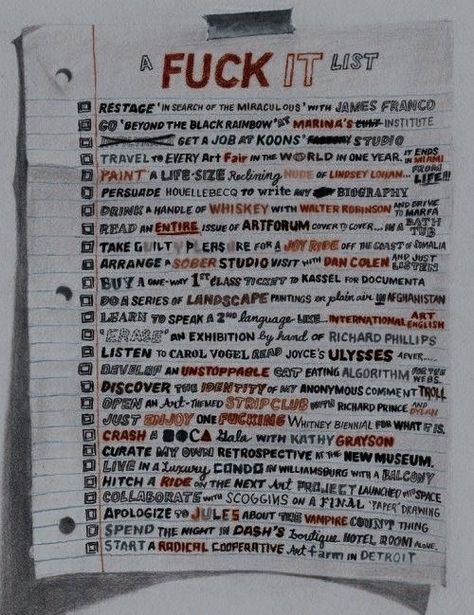 A FUCK IT LIST
RESTAGE 'IN SEARCH OF THE MIRACULOUS' WITH JAMES FRANCO
GO 'BEYOND THE BLACK RAINBOW' AT MARINA'S CULT INSTITUTE
GET A JOB AT KOONS' FACTORY STUDIO
TRAVEL TO EVERY Art Fair IN THE WORLD IN ONE YEAR. IT ENDS IN MIAMI
PAINT A LIFE-SIZE Reclining NUDE OF LINDSEY LOHAN... FROM LIFE!!!
PERSUADE HOUELLEBECQ TO write MY BIOGRAPHY
DRINK A HANDLE OF WHISKEY WITH WALTER ROBINSON AND DRIVE TO MARFA
READ AN ENTIRE ISSUE OF ARTFORUM COVER TO COVER... IN A BATH TUB
TAKE GUILTY PLEASURE FOR A JOY RIDE OFF THE COAST OF SOMALIA
ARRANGE A SOBER STUDIO VISIT WITH DAN COLEN AND JUST LISTEN
BUY A ONE-WAY 1ST CLASS TICKET TO KASSEL FOR DOCUMENTA
DO A SERIES OF LANDSCAPE PAINTINGS en plain air IN AFGHANISTAN
LEARN TO SPEAK A 2ND language LIKE... INTERNATIONAL ART ENGLISH
'ERASE' AN EXHIBITION by hand OF RICHARD PHILLIPS
LISTEN TO CAROL VOGEL READ JOYCE'S ULYSSES 4EVER....
DEVELOP AN UNSTOPPABLE CAT EATING ALGORITHM FOR THE WEBS.
DISCOVER THE IDENTITY OF MY ANONYMOUS COMMENT TROLL
OPEN AN Art-THEMED STRIP CLUB WITH RICHARD PRINCE AND DYLAN
JUST ENJOY ONE FUCKING WHITNEY BIENNIAL FOR WHAT IT IS.
CRASH A ■●CA Gala WITH KATHY GRAYSON
CURATE MY OWN RETROSPECTIVE AT THE NEW MUSEUM.
LIVE IN A Luxury CONDO IN WILLIAMSBURG WITH A BALCONY
HITCH A RIDE ON THE NEXT Art PROJECT LAUNCHED INTO SPACE
COLLABORATE WITH SCOGGINS ON A FINAL 'PAPER' DRAWING
APOLOGIZE TO JULES ABOUT THE VAMPIRE COUNT THING
SPEND THE NIGHT IN DASH'S boutique HOTEL ROOM ALONE.
START A RADICAL COOPERATIVE Art farm IN DETROIT